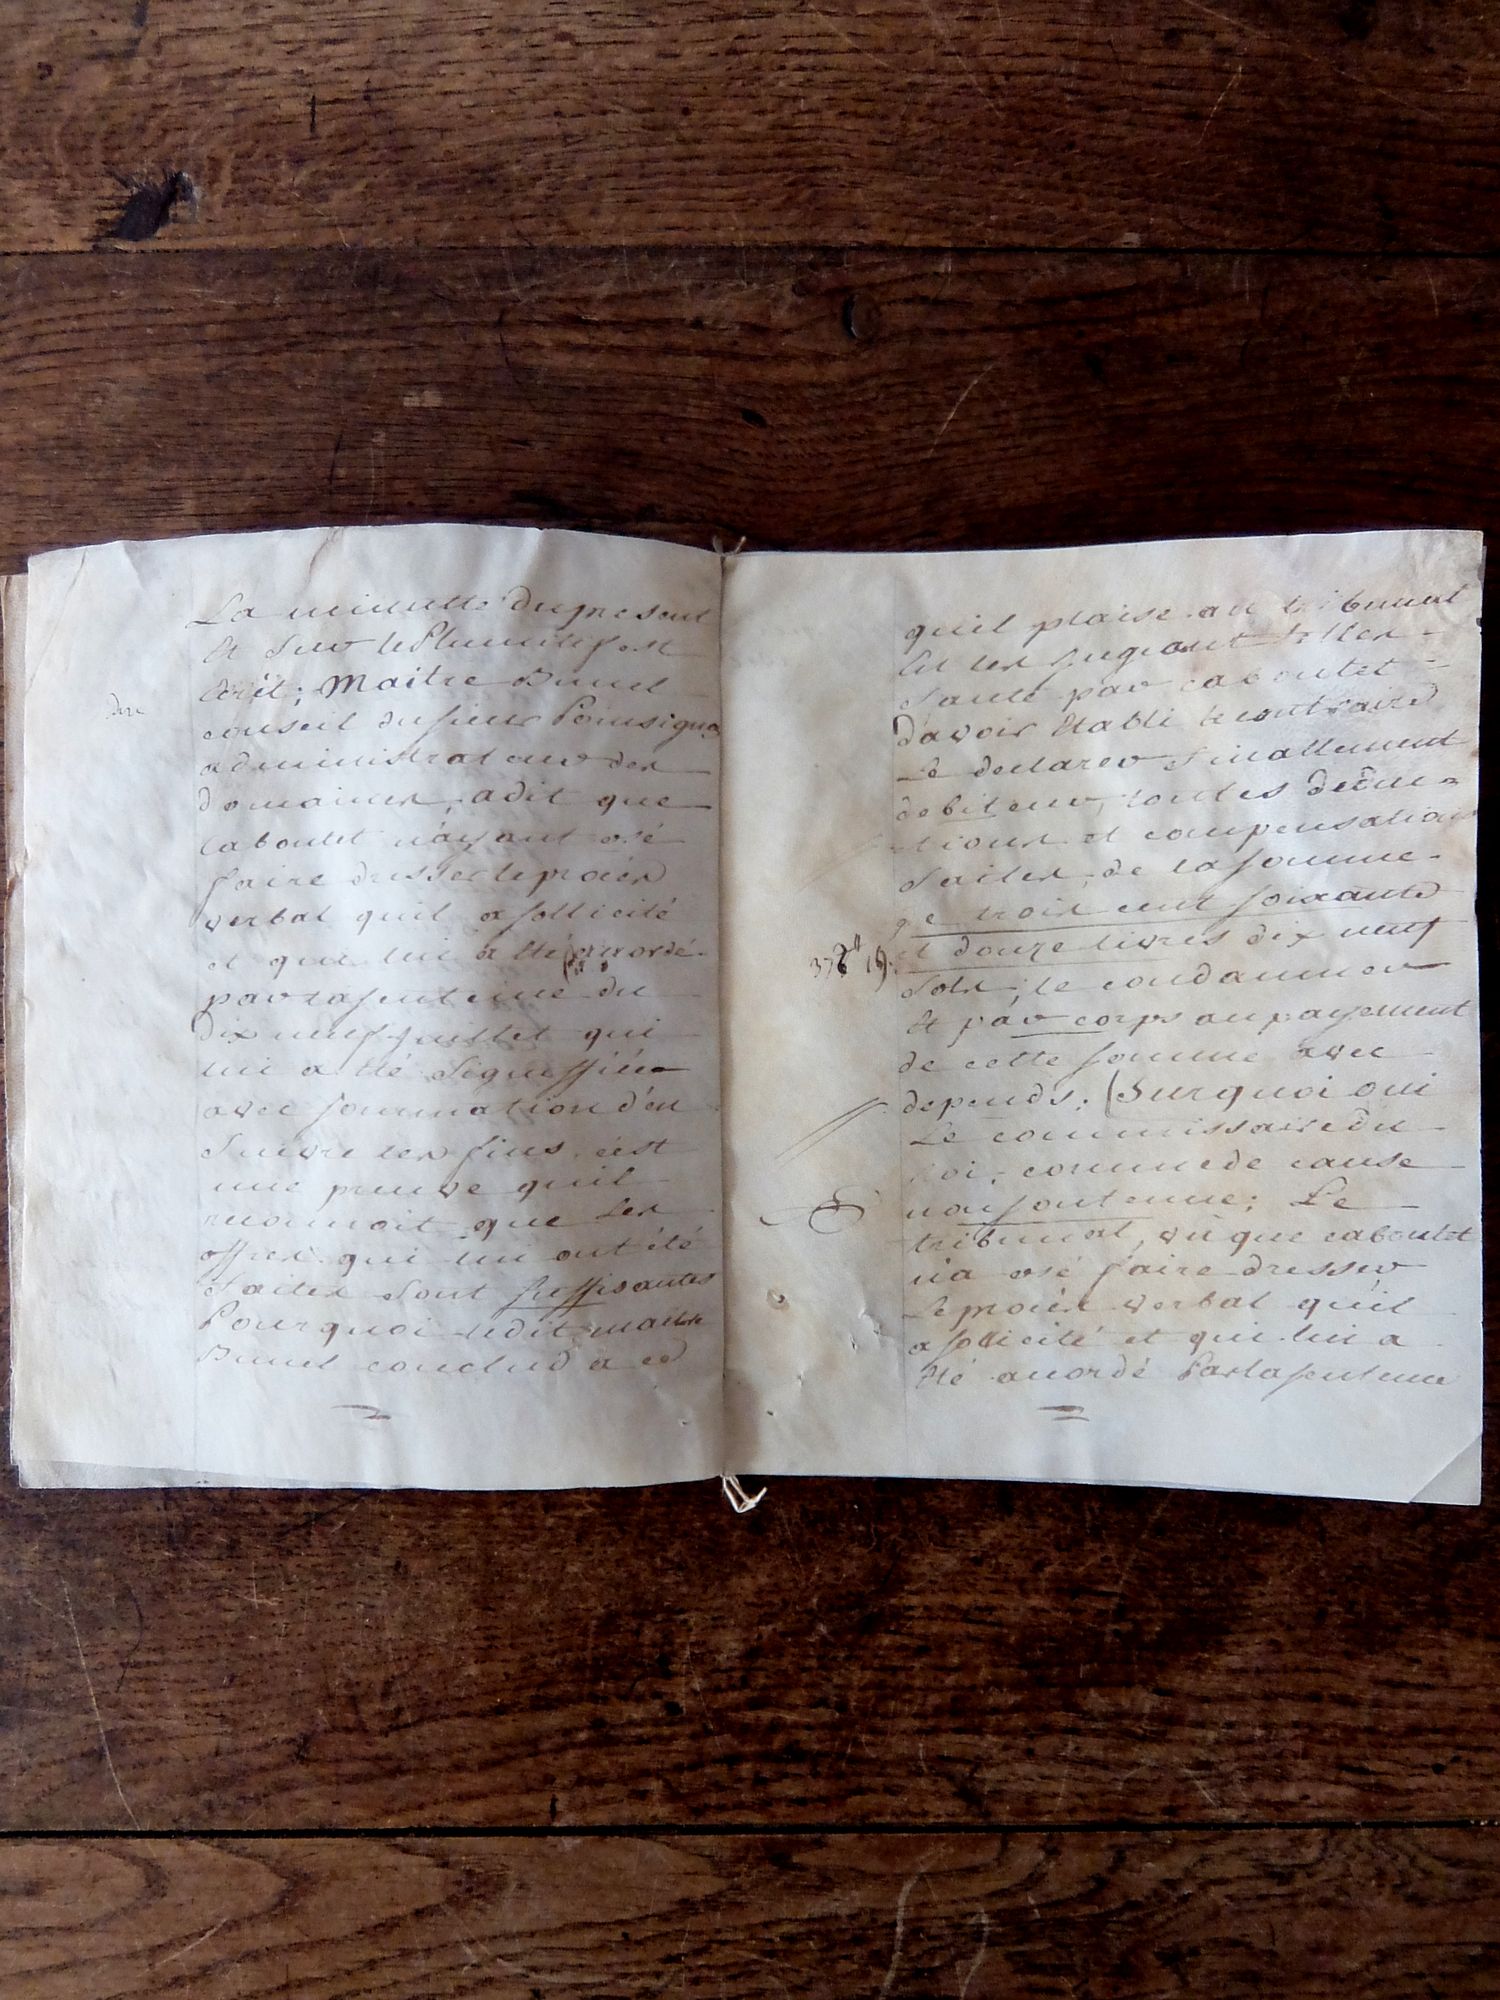 La minutte du present
Et sur le Plumitif est
Ecrit; Maitre Bunel
conseil du sieur Poinsigno
administrateur des
domaines, a dit que
Caboutet n'ayant osé
faire dresser le procès
verbal quil a sollicité
et qui lui a été accordé
par la sentence du
dix neuf juillet qui
lui a été signiffiée
avec sommation d'en
suivre les fins, c'est
une preuve quil
reconnoit que les
offres qui lui ont été
faites sont suffisantes
Pourquoi ledit maitre
Bunel conclud a ce
quil plaise au tribunal
Et les jugeant telles
faute par caboutet
d'avoir Etabli le contraire
Le declarer finallement
debiteur, toutes deduc
tions et compensations
faites, de la somme
de trois cent soixante
et douze livres dix neuf
372ᴸᴸ 19.
sols, le condamner
Et par corps au payement
de cette somme avec
depends; (Surquoi oui
Le commissaire du
Roi, comme de cause
non soutenue; Le
tribunal, vu que caboutet
n'a osé faire dresser
Le procès verbal quil
a sollicité et qui lui a
Eté accordé Par la sentence